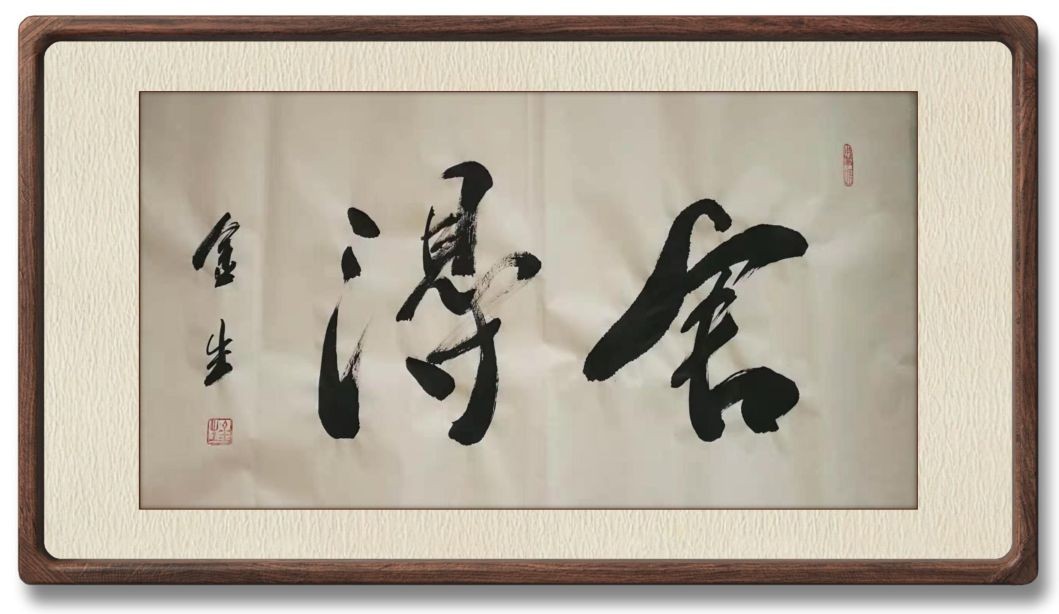 舍得
金生